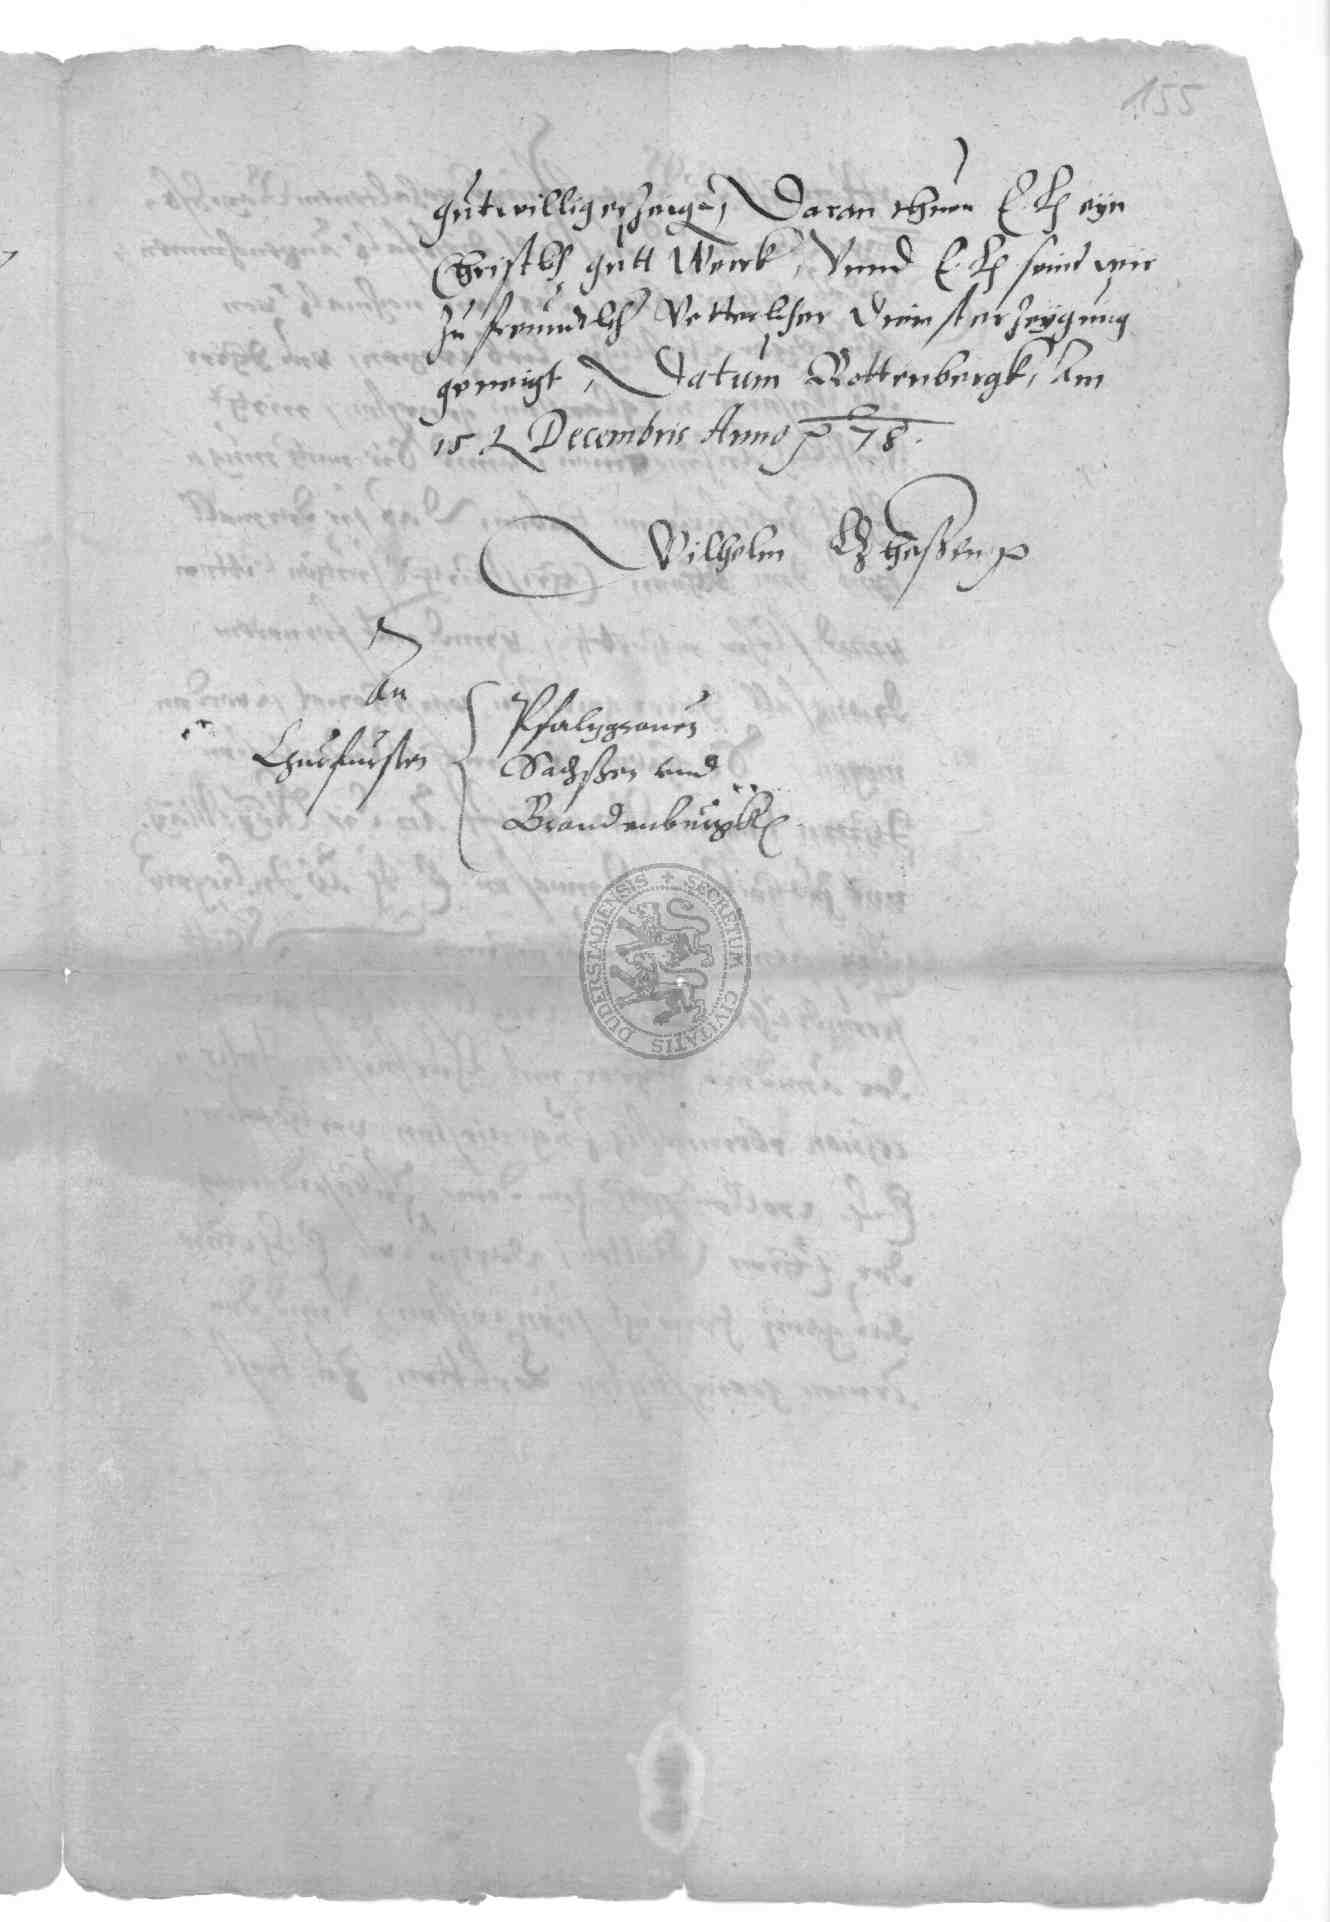 155
gutwillig erzeigen, Daran thuen E. L. eyn
Christlich gutt Werck, Vnnd E. L. seind wir
zu freundtlicher Vetterlicher Diensterzeygung
geneigt, Datum Rottenbergk, Am
15. t Decembris Anno p 78.
Wilhelm L z Hessen p
An
Churfursten
Pfaltzgraven
Sachssen und
Brandenburgk
SECRETUM CIVITATIS DUDERSTADIENSIS